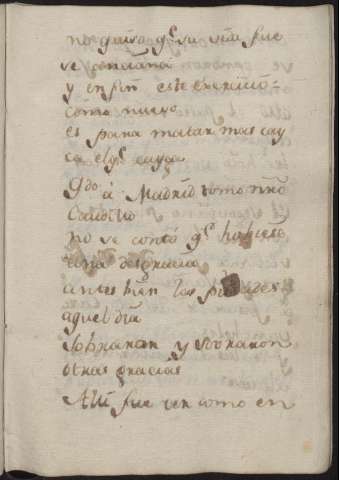 no quiso qe su
se
y en fin este exercicio
como nuevo
es para matar mas cay
ga el qe cayga
Qdo á Madrid tomo nro
Caudillo
no se contó qe hubiese
una desgracia
antes bien las piedades
aquel dia
sobraran y sobraron
otras gracias
Alli fue ver como en